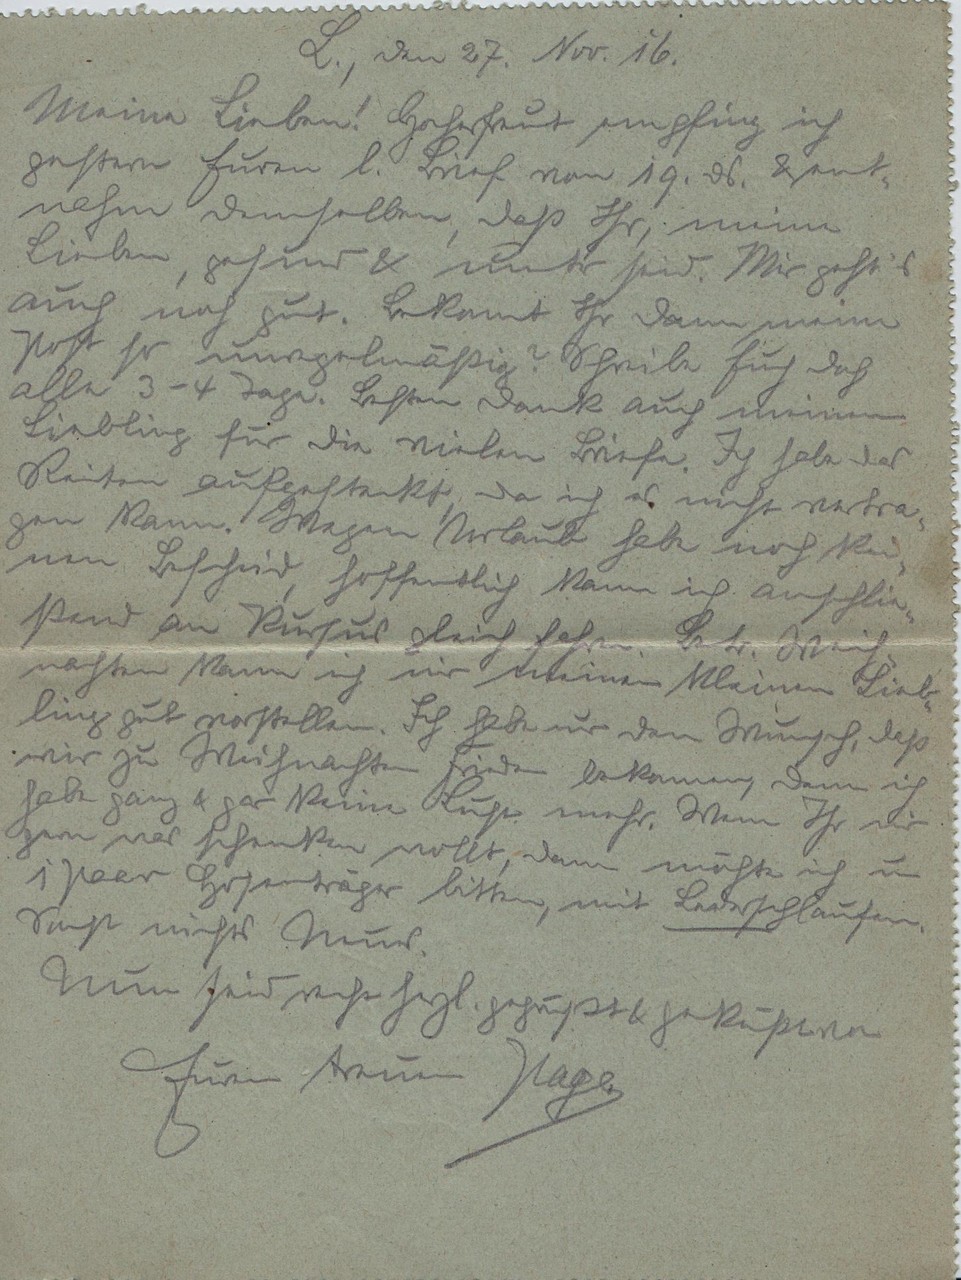 L., den 27. Nov. 16.
Meine Lieben! Hocherfreut empfing ich
gestern Euren l. Brief vom 19. ds. & ent-
nehm demselben, daß Ihr, meine
Lieben, gesund & munter seid. Mir geht's
auch noch gut. Bekommt Ihr denn meine
Post so unregelmäßig? Schreibe Euch doch
alle 3-4 Tage. Besten Dank auch meinem
Liebling für die vielen Briefe. Ich habe das
Reiten aufgesteckt, da ich es nicht vertra-
gen kann. Wegen Urlaub habe noch kei-
nen Bescheid, hoffentlich kann ich anschlie-
ßend an Kursus gleich fahren. Betr. Weih-
nachten kann ich mir meinen kleinen Lieb-
ling gut vorstellen. Ich habe nur den Wunsch, daß
wir zu Weihnachten Frieden bekommen, denn ich
habe ganz & gar keine Lust mehr. Wenn Ihr mir
gern was schenken wollt, dann möchte ich um
1 Paar Hosenträger bitten, mit Lederschlaufen.
Sonst nichts Neues.
Nun seid recht herzl. gegrüßt & geküßt von
Eurem treuen